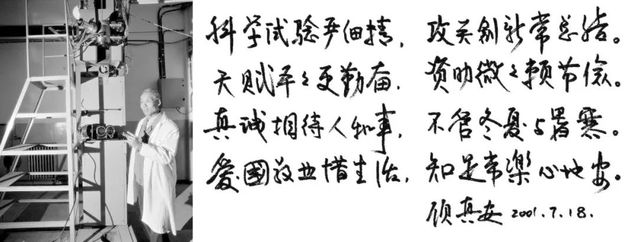 科学试验严细精，攻关创新常总结。
天赋平々更勤奋，资助微々赖节俭。
真诚相待人和事，不管冬夏与暑寒。
爱國敬业惜生活，知足常樂心地安。
顾真安 2001.7.18.